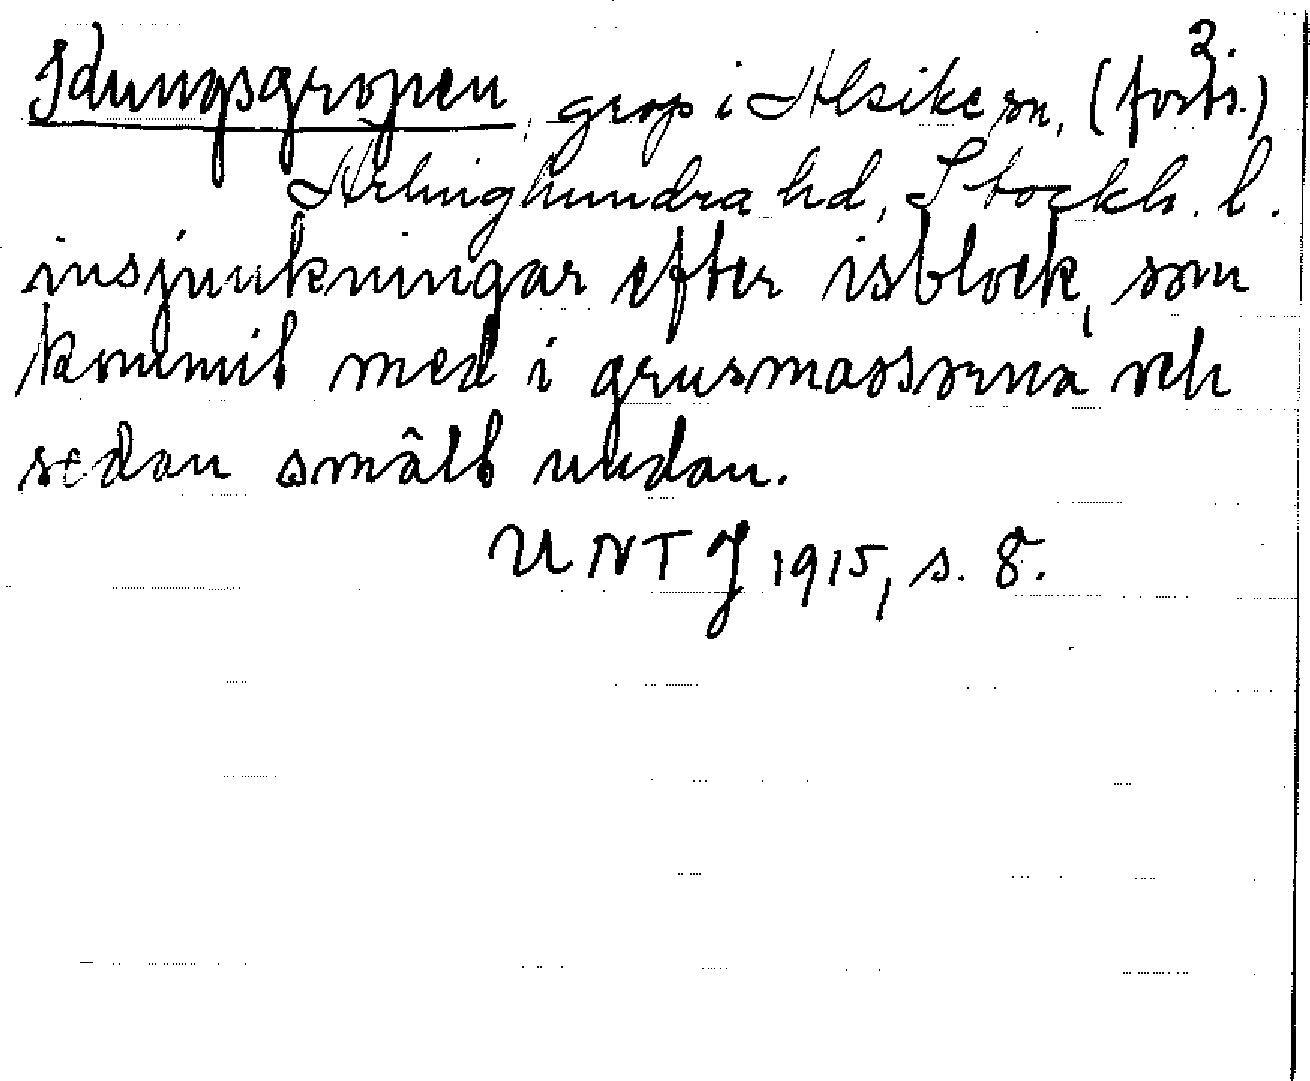 Idungsgropen, grop i Alsike sn, (forts.) 2.
Ärlinghundra hd, Stockh. l.
insjunkningar efter isblock, som
kommit med i grusmassorna och
sedan smält undan.
UNTJ 1915, s. 8.